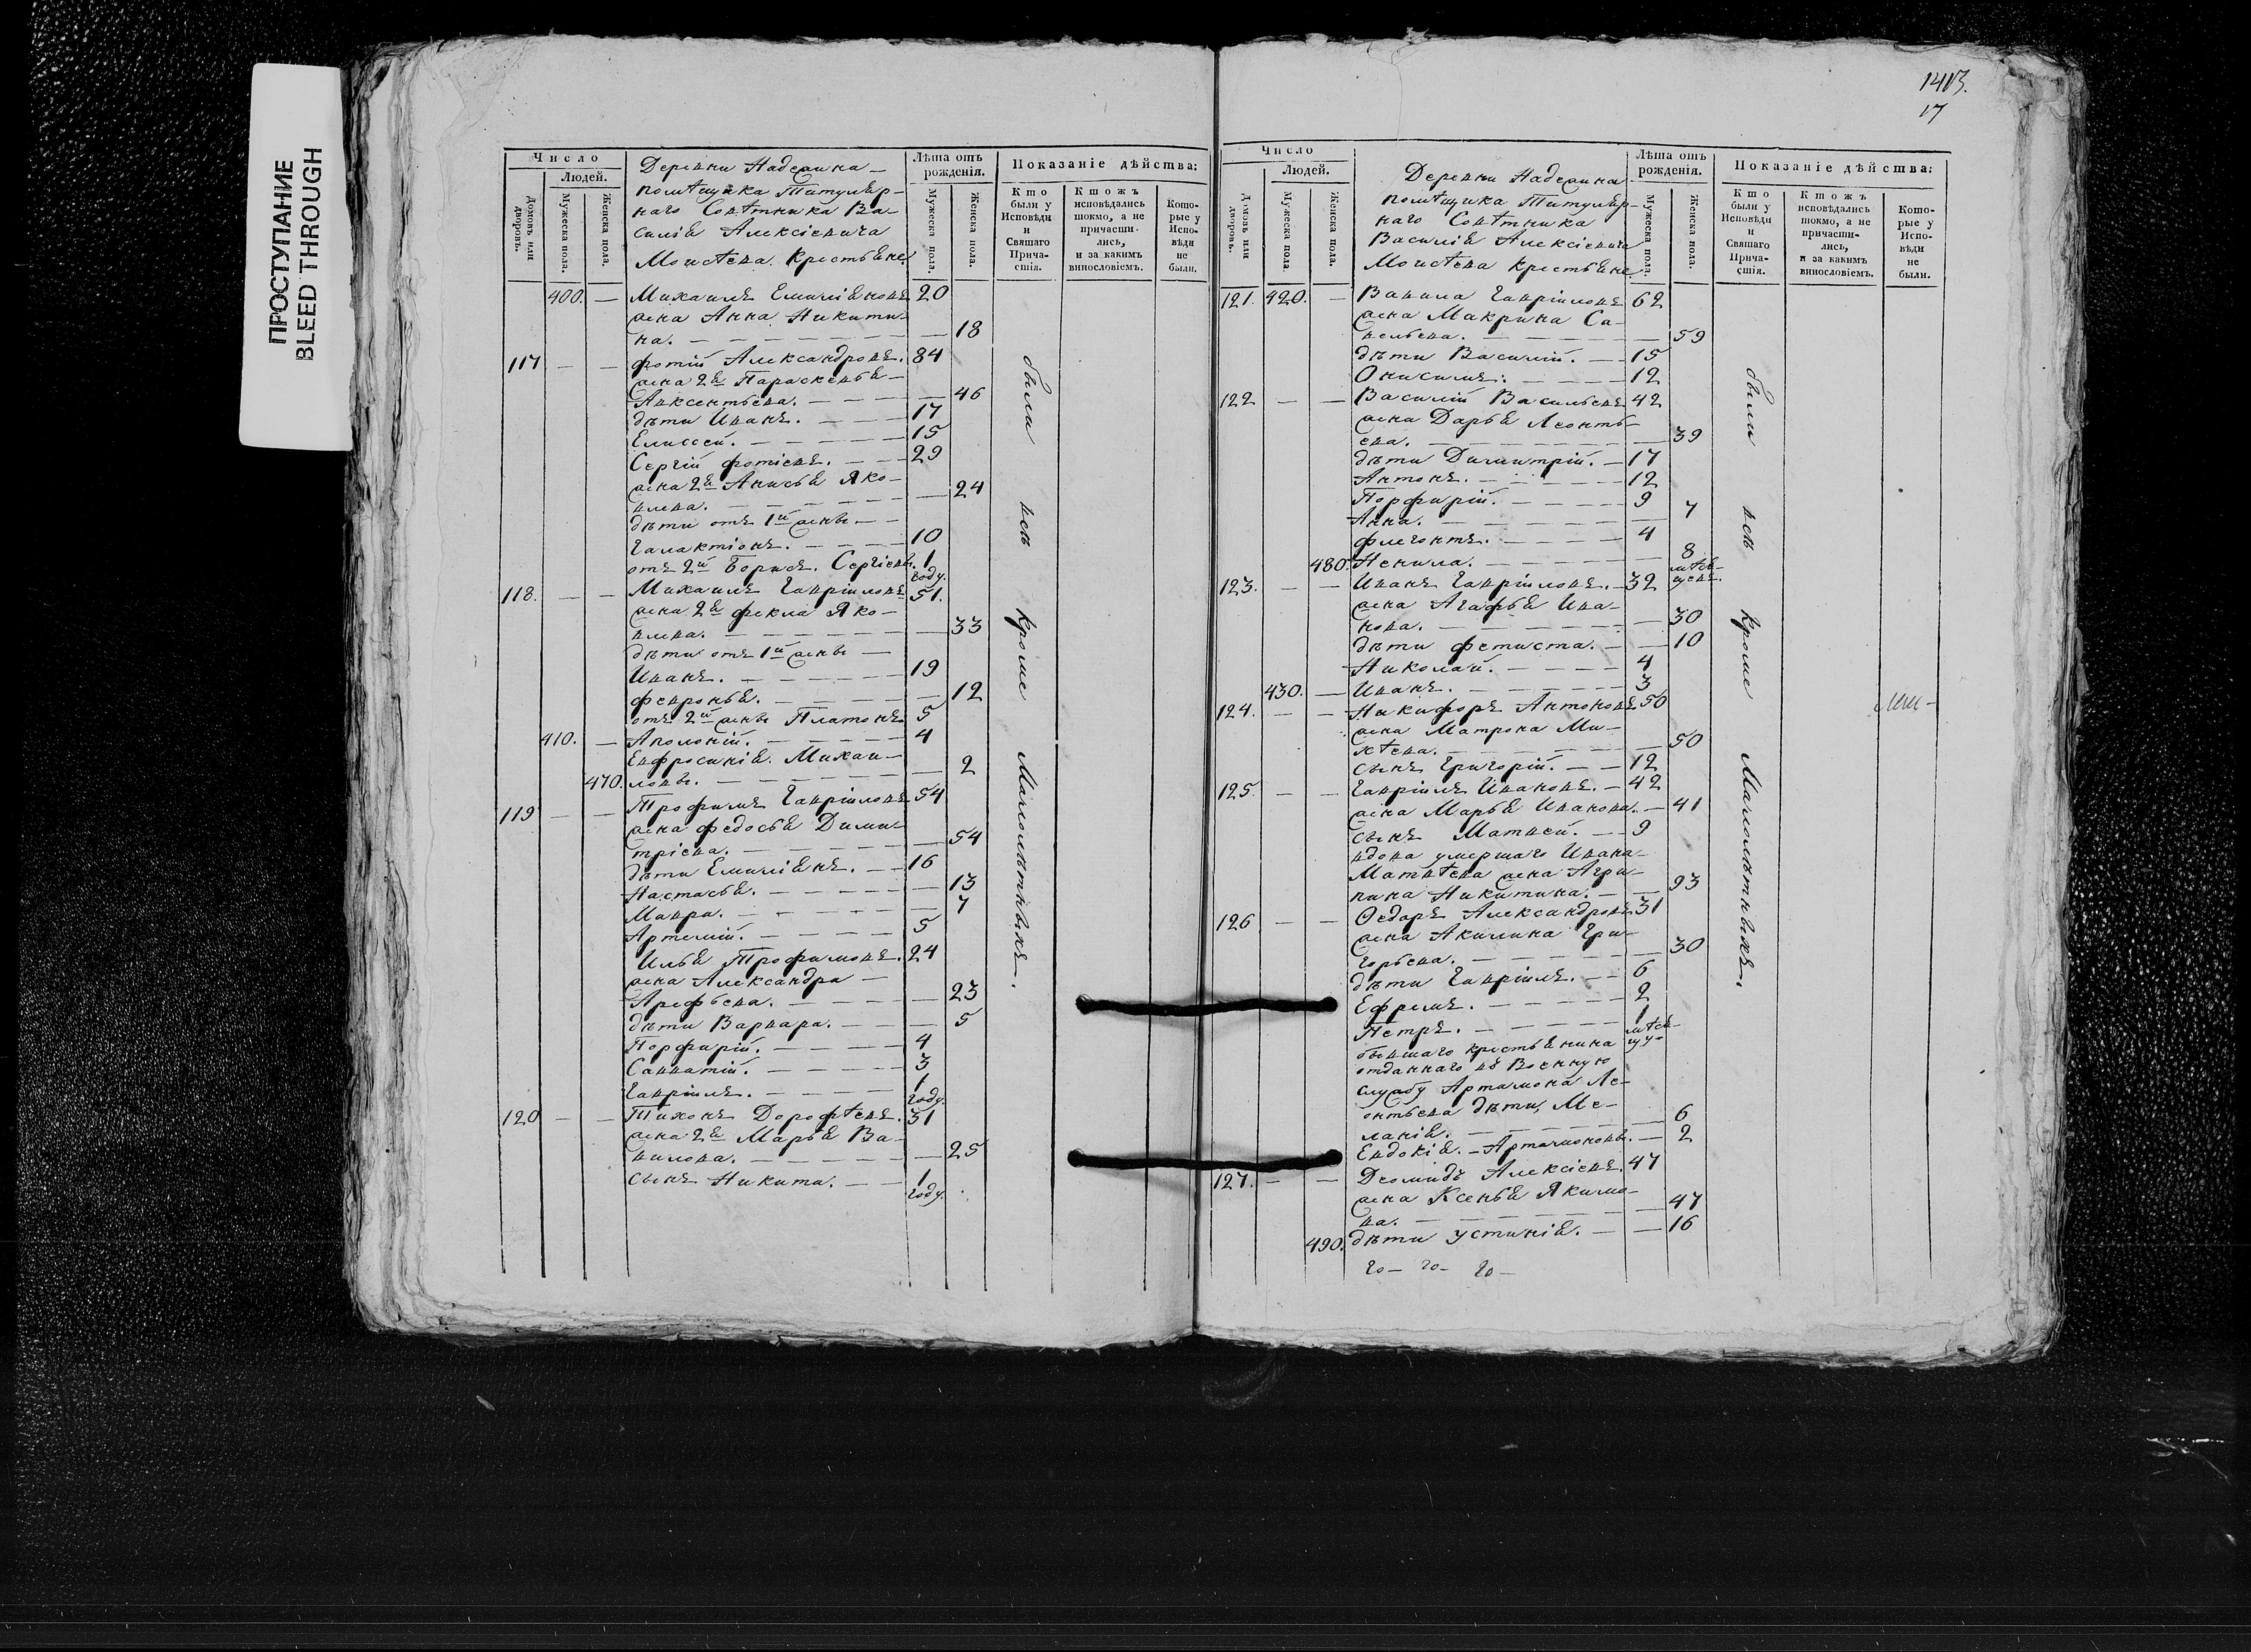 ПРОСТУПАНИЕ
BLEED THROUGH
1413.
17
Число
Людей.
Домовъ или дворовъ.
Мужеска пола.
Женска пола.
Деревни Надежина
помѣщика Титуляр-
наго Совѣтника Ва-
силія Алексіевича
Моисѣева крестьяне
Лѣта отъ рожденія.
Мужеска пола.
Женска пола.
Показаніе дѣйства:
Кто были у Исповѣди и Святаго Причастія.
Ктожъ исповѣдались токмо, а не причастились, и за какимъ винословіемъ.
Которые у Исповѣди не были.
400. — Михаилъ Емиліановъ 20
жена Анна Никити-
на. — 18
117 — — Фотій Александровъ. 84
жена 2я Параскевья
Авксентьева. — 46
дѣти Иванъ. — 17
Елиссей. — 15
Сергій Фотіевъ. — 29
жена 2я Анисья Яко-
влева. — 24
дѣти отъ 1й жены —
Галактіонъ. — 10
отъ 2й Борисъ. Сергіевы. 1 году.
118. — — Михаилъ Гавріиловъ 51.
жена 2я Фекла Яко-
влева. — 33
дѣти отъ 1й жены —
Иванъ. — 19
Февронья. — 12
отъ 2й жены Платонъ 5
410. — Аполоній. — 4
Евфросинія. Михаи-
470. ловы. — 2
119 — — Трофимъ Гавріиловъ 54
жена Федосья Дими-
тріева. — 54
дѣти Емиліянъ. — 16
Настасья. — 13
Мавра. — 7
Артемій. — 5
Илья Трофимовъ. 24
жена Александра —
Арефьева. — 23
дѣти Варвара. — 5
Порфирій. — 4
Савватій. — 3
Гавріилъ. — 1 году.
120 — — Тихонъ Дорофѣевъ. 31
жена 2я Марья Ва-
вилова. — 25
сынъ Никита. — 1 году.
были всѣ кромѣ Малолѣтныхъ.
Число
Людей.
Домовъ или дворовъ.
Мужеска пола.
Женска пола.
Деревни Надежина
помѣщика Титуляр-
наго Совѣтника
Василія Алексіевича
Моисѣева крестьяне
Лѣта отъ рожденія.
Мужеска пола.
Женска пола.
Показаніе дѣйства:
Кто были у Исповѣди и Святаго Причастія.
Ктожъ исповѣдались токмо, а не причастились, и за какимъ винословіемъ.
Которые у Исповѣди не были.
121. 420. — Вавила Гавріиловъ 62
жена Макрина Са-
вельева. — 59
дѣти Василій. — 15
Онисимъ. — 12
122 — — Василій Васильевъ 42
жена Дарья Леонть-
ева. — 39
дѣти Димитрій. — 17
Антонъ. — 12
Порфирій. — 9
Анна. — 7
Флегонтъ. — 4
480. Ненила. — 8 мѣся-
цевъ.
123. — — Иванъ Гавріиловъ. — 32
жена Агафья Ива-
нова. — 30
дѣти Фетиста. — 10
Николай. — 4
430. — Иванъ. — 3
124. — — Никифоръ Антоновъ 50
жена Матрона Ми-
хѣева. — 50
сынъ Григорій. — 12
125. — — Гавріилъ Ивановъ. — 42
жена Марья Иванова. — 41
сынъ Матвей. — 9
вдова умершаго Ивана
Матвѣева жена Агри-
пина Никитина. — 93
126 — — Ѳедоръ Александровъ 31
жена Акилина Гри-
горьева. — 30
дѣти Гавріилъ. — 6
Ефремъ. — 2
Петръ. — 1 мѣся-
цу.
бывшаго крестьянина
отданнаго въ Военную
службу Артамона Ле-
онтьева дѣти, Ме-
ланія. — 6
Евдокія. — Артамоновы. — 2
127. — — Деомидъ Алексіевъ. 47
жена Ксенья Якимо-
ва. — 47
490. дѣти Устинія. — 16
20 — 20 — 20 —
были всѣ кромѣ Малолѣтныхъ.